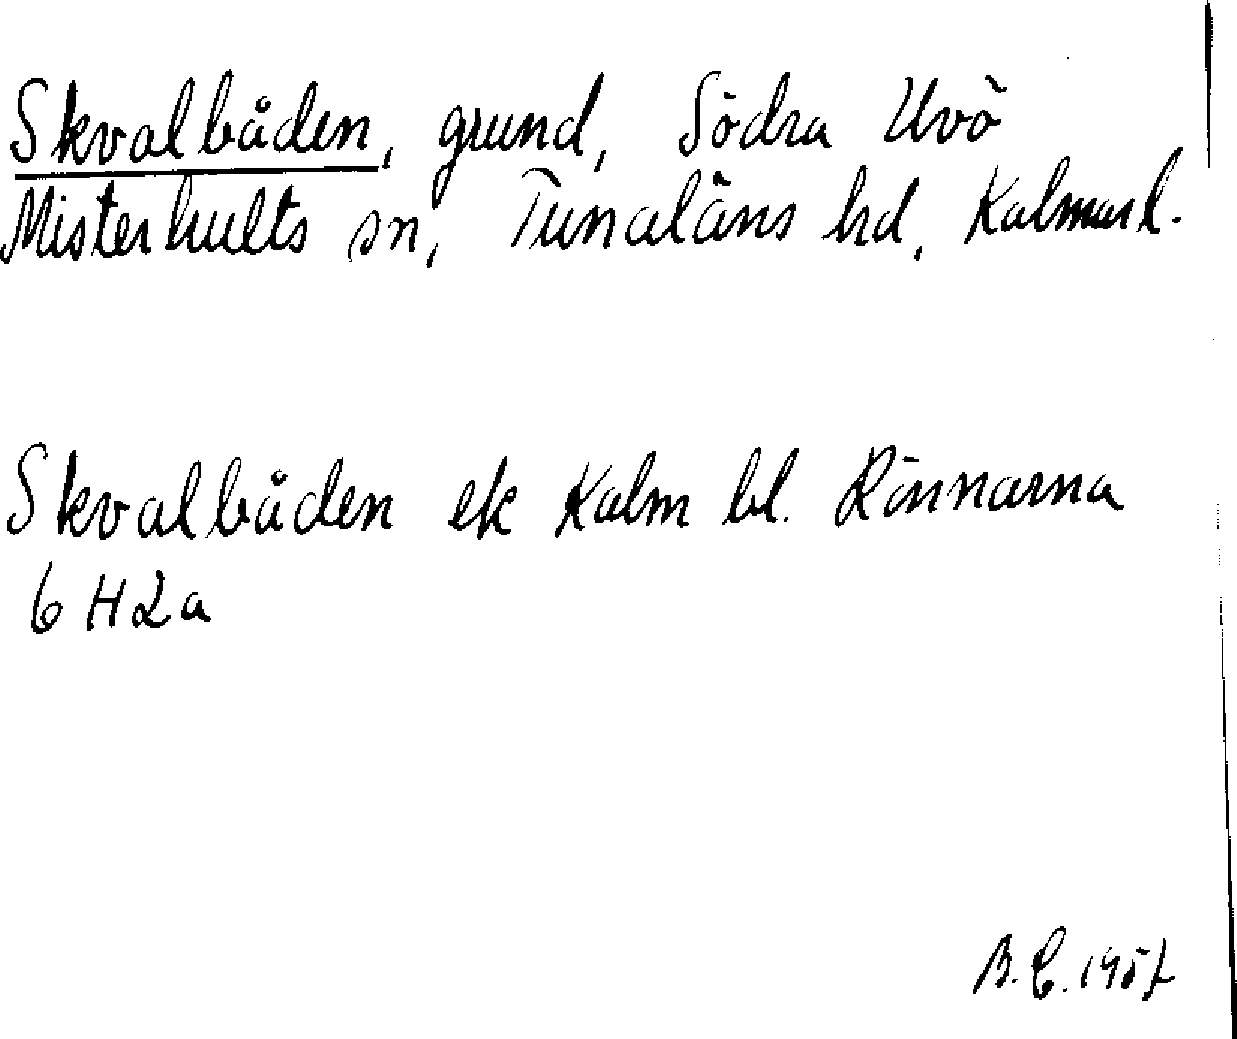 Skvalbåden, grund, Södra Uvö
Misterhults sn, Tunaläns hd, Kalmar l.
Skvalbåden ek Kalm bl. Rönnarna
6 H 2a
B.E. 1957